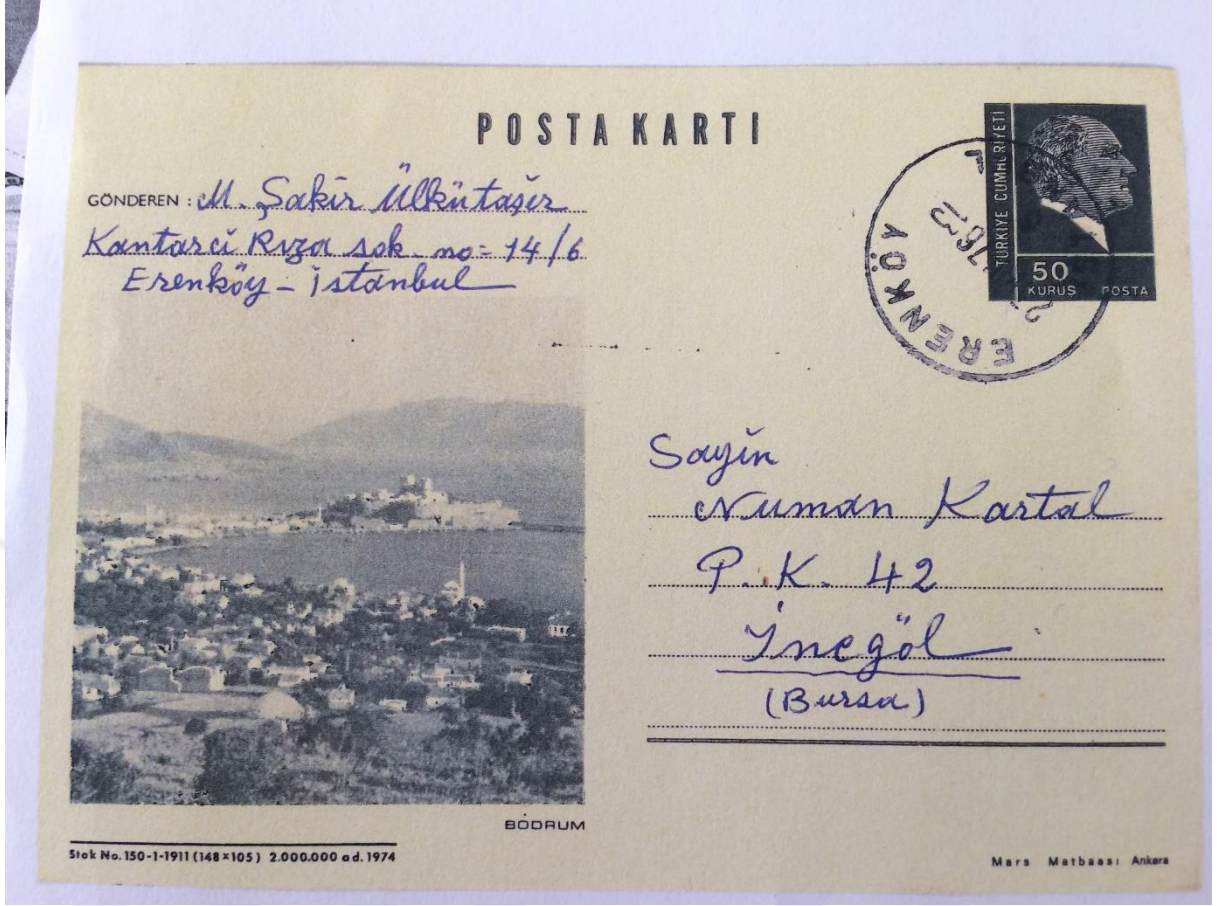 POSTA KARTI
GÖNDEREN : M. Şakir Ülkütaşır
Kantarcı Rıza sok. no= 14/6
Erenköy - İstanbul
TÜRKİYE CUMHURİYETİ
50
KURUŞ POSTA
ERENKÖY
Sayın
Numan Kartal
P.K. 42
İnegöl
(Bursa)
BODRUM
Stok No. 150-1-1911 (148×105) 2.000.000 ad. 1974
Mars Matbaası Ankara